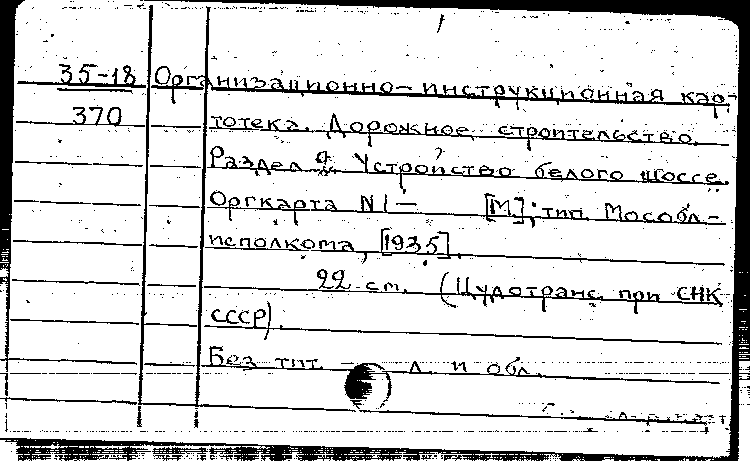 35-18 Организационно-инструкционная кар-
370 тотека. Дорожное строительство.
Раздел Устройство белого шоссе.
Оргкарта N1— [М], тип. Мособл-
исполкома, [1935].
22 см. (Цудотранс при СНК
СССР).
Без тит. л. и обл.